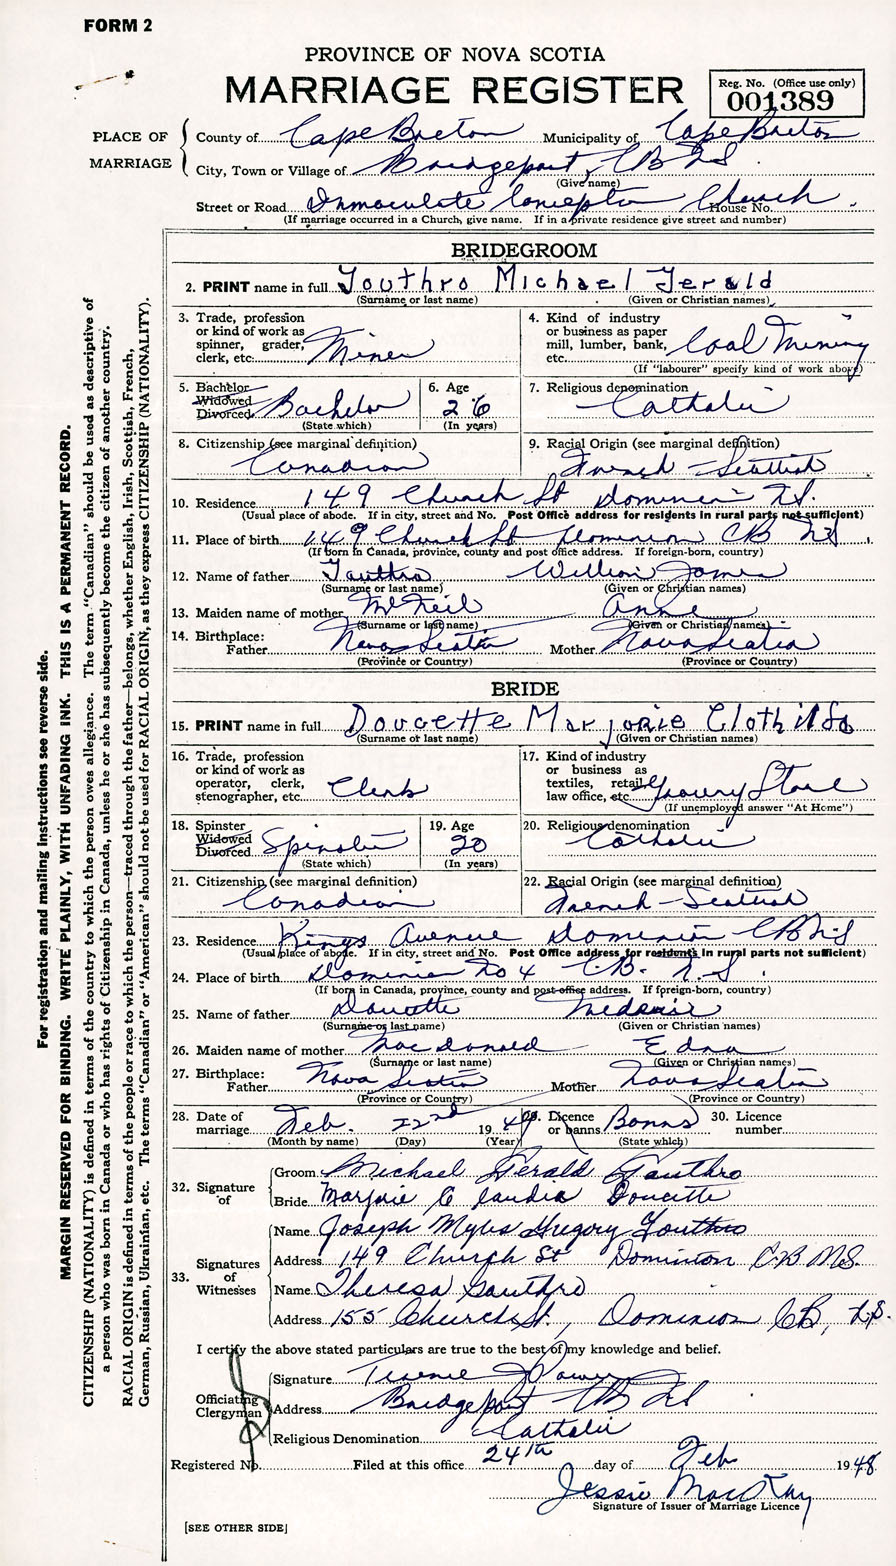 FORM 2
PROVINCE OF NOVA SCOTIA
MARRIAGE REGISTER
Reg. No. (Office use only)
001389
PLACE OF MARRIAGE
County of Cape Breton Municipality of Cape Breton
City, Town or Village of Bridgeport, CB NS
(Give name)
Street or Road Immaculate Conception Church House No.
(If marriage occurred in a Church, give name. If in a private residence give street and number)
BRIDEGROOM
2. PRINT name in full Gouthro Michael Gerald
(Surname or last name) (Given or Christian names)
3. Trade, profession or kind of work as spinner, grader, clerk, etc. Miner
4. Kind of industry or business as paper mill, lumber, bank, etc. Coal Mining
(If "labourer" specify kind of work above)
5. Bachelor Widowed Divorced Bachelor
(State which)
6. Age 26
(In years)
7. Religious denomination Catholic
8. Citizenship (see marginal definition) Canadian
9. Racial Origin (see marginal definition) French - Scottish
10. Residence 149 Church St Dominion N.S.
(Usual place of abode. If in city, street and No. Post Office address for residents in rural parts not sufficient)
11. Place of birth 149 Church St Dominion CB NS
(If born in Canada, province, county and post office address. If foreign-born, country)
12. Name of father Gouthro William James
(Surname or last name) (Given or Christian names)
13. Maiden name of mother McNeil Anne
(Surname or last name) (Given or Christian names)
14. Birthplace: Father Nova Scotia Mother Nova Scotia
(Province or Country) (Province or Country)
BRIDE
15. PRINT name in full Doucette Marjorie Clothilda
(Surname or last name) (Given or Christian names)
16. Trade, profession or kind of work as operator, clerk, stenographer, etc. Clerk
17. Kind of industry or business as textiles, retail, law office, etc. Grocery Store
(If unemployed answer "At Home")
18. Spinster Widowed Divorced Spinster
(State which)
19. Age 20
(In years)
20. Religious denomination Catholic
21. Citizenship (see marginal definition) Canadian
22. Racial Origin (see marginal definition) French - Scottish
23. Residence Kings Avenue Dominion CB NS
(Usual place of abode. If in city, street and No. Post Office address for residents in rural parts not sufficient)
24. Place of birth Dominion No 4 C.B. N.S.
(If born in Canada, province, county and post-office address. If foreign-born, country)
25. Name of father Doucette
(Surname or last name) (Given or Christian names)
26. Maiden name of mother MacDonald Edna
(Surname or last name) (Given or Christian names)
27. Birthplace: Father Nova Scotia Mother Nova Scotia
(Province or Country) (Province or Country)
28. Date of marriage Feb. 22nd 19
(Month by name) (Day) (Year)
29. Licence or banns Banns
(State which)
30. Licence number
32. Signature of
Groom Michael Gerald Gouthro
Bride Marjorie Claudia Doucette
33. Signatures of Witnesses
Name Joseph Myles Gregory Gouthro
Address 149 Church St Dominion C.B N.S.
Name Theresa Gouthro
Address 155 Church St., Dominion CB, N.S.
I certify the above stated particulars are true to the best of my knowledge and belief.
Officiating Clergyman
Signature Power
Address Bridgeport CB NS
Religious Denomination Catholic
Registered No. Filed at this office 24th day of Feb 1948
Jessie MacKay
Signature of Issuer of Marriage Licence
[SEE OTHER SIDE]
For registration and mailing instructions see reverse side.
MARGIN RESERVED FOR BINDING. WRITE PLAINLY, WITH UNFADING INK. THIS IS A PERMANENT RECORD.
CITIZENSHIP (NATIONALITY) is defined in terms of the country to which the person owes allegiance. The term "Canadian" should be used as descriptive of
a person who was born in Canada or who has rights of Citizenship in Canada, unless he or she has subsequently become the citizen of another country.
RACIAL ORIGIN is defined in terms of the people or race to which the person—traced through the father—belongs, whether English, Irish, Scottish, French,
German, Russian, Ukrainian, etc. The terms "Canadian" or "American" should not be used for RACIAL ORIGIN, as they express CITIZENSHIP (NATIONALITY).